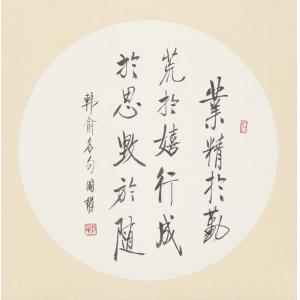 業精於勤
荒於嬉行成
於思毀於随
韩愈名句 国权